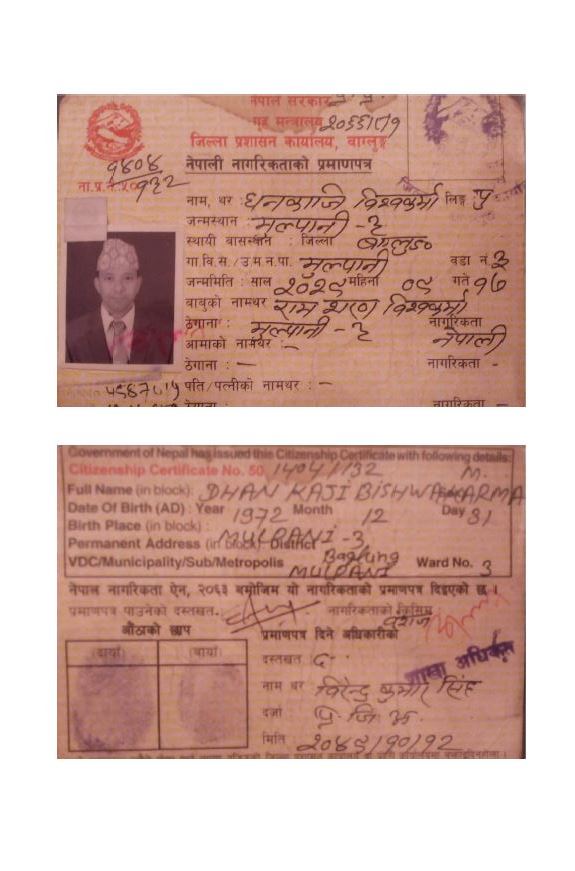 नेपाल सरकार
गृह मन्त्रालय २०६६।८।१
जिल्ला प्रशासन कार्यालय, बाग्लुङ्ग
नेपाली नागरिकताको प्रमाणपत्र
१४०४
ना.प्र.नं. ५०
१३२
नाम, थर : धनकाजि विश्वकर्मा लिङ्ग पु
जन्मस्थान मुल्पानी -३
स्थायी बासस्थान : जिल्ला बाग्लुङ
गा.वि.स./उ.म.न.पा. मुल्पानी वडा नं ३
जन्ममिति : साल २०२९ महिना ०९ गते १७
बाबुको नामथर राम शरण विश्वकर्मा
ठेगाना : मुल्पानी -३ नागरिकता
आमाको नामथर :- नेपाली
ठेगाना : - नागरिकता -
पति/पत्नीको नामथर : -
ठेगाना : नागरिकता
Government of Nepal has issued this Citizenship Certificate with following details:
Citizenship Certificate No. 50 1404/132 M.
Full Name (in block): DHAN KAJI BISHWAKARMA
Date Of Birth (AD) : Year 1972 Month 12 Day 31
Birth Place (in block) : MULPANI -3
Permanent Address (in block): District Baglung
VDC/Municipality/Sub/Metropolis MULPANI Ward No. 3
नेपाल नागरिकता ऐन, २०६३ बमोजिम यो नागरिकताको प्रमाणपत्र दिइएको छ ।
प्रमाणपत्र पाउनेको दस्तखत. नागरिकताको किसिम
वंशज
औंठाको छाप प्रमाणपत्र दिने अधिकारीको
(दायाँ) (बायाँ) दस्तखत द.
शाखा अधिकृत
नाम थर विरेन्द्र कुमार सिंह
दर्जा प्र. जि. अ.
मिति २०४९/१०/१२